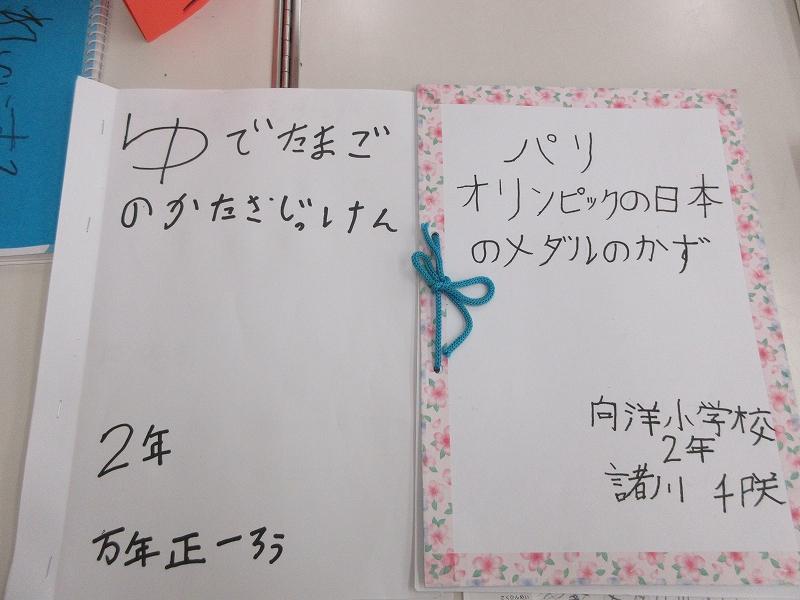 ゆでたまご
のかたさじっけん
2年
万年正一ろう
パリ
オリンピックの日本
のメダルのかず
向洋小学校
2年
諸川 千咲
さくひんめい